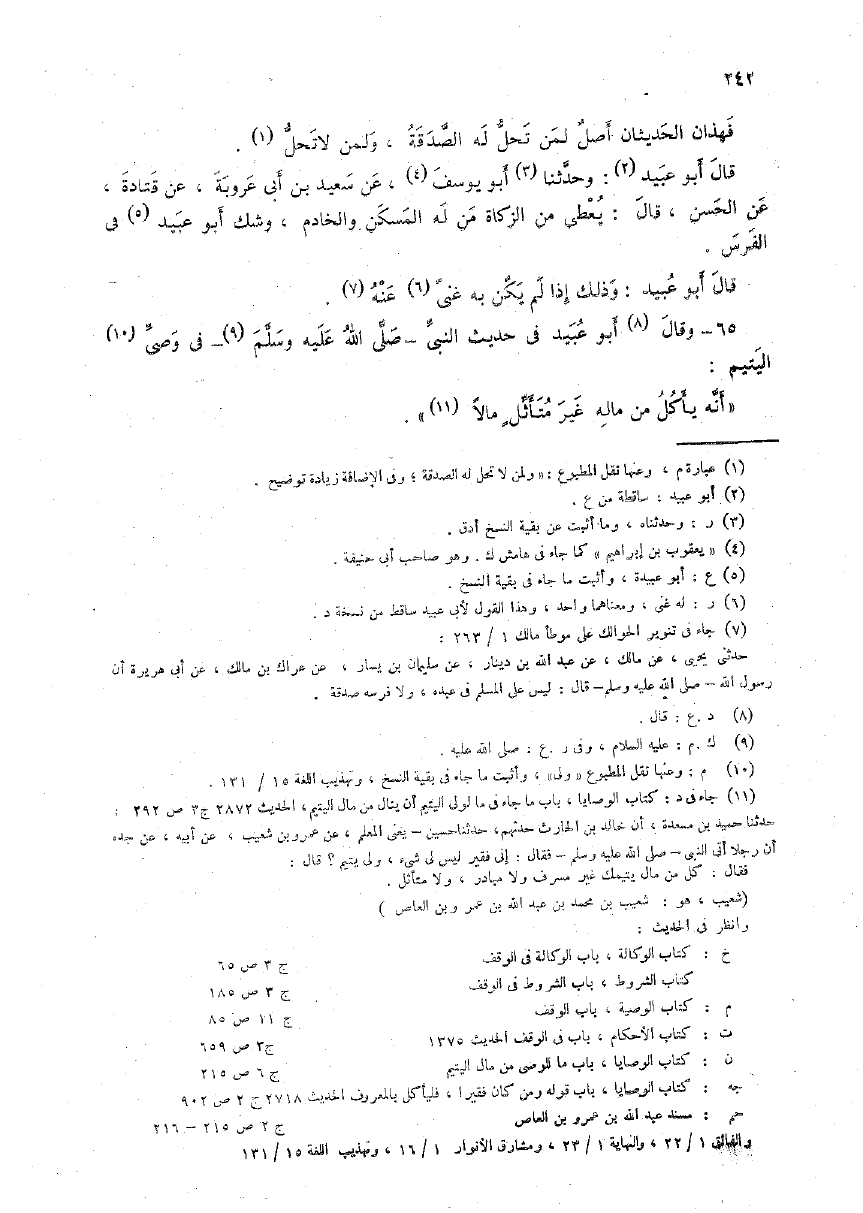 ٢٤٢
فَهذان الحَديثان أَصلٌ لمَن تَحلُّ لَه الصَّدَقَةُ ، وَلمن لاتَحلُّ (١) .
قالَ أَبو عبَيد (٢) : وحدَّثنا (٣) أَبو يوسفَ (٤) ، عَن سَعيد بن أَبى عَروبَةَ ، عن قَتادةَ ،
عَن الحَسنِ ، قالَ : يُعْطى من الزكاة مَن لَه المَسكَن والخادم ، وشك أَبو عبَيد (٥) فى
الفَرَسَ .
قالَ أَبو عُبيد : وَذلك إذا لَم يَكُن به غنىً (٦) عَنْهُ (٧) .
٦٥ – وقالَ (٨) أَبو عُبَيد فى حديث النبىِّ – صَلَّى اللهُ عَلَيه وسَلَّمَ (٩) – فى وَصىِّ (١٠)
اليَتيم :
«أَنَّه يأكُلُ من ماله غَيرَ مُتَأَثِّلٍ مالاً (١١)» .
(١) عبارة م ، وعنها نقل المطبوع : «ولمن لا تحل له الصدقة ؛ وفى الإضافة زيادة توضيح .
(٢) أبو عبيد : ساقطة من ع .
(٣) ر : وحدثناه ، وما أثبت عن بقية النسخ أدق .
(٤) « يعقوب بن إبراهيم » كما جاء فى هامش ك . وهو صاحب أبى حنيفة .
(٥) ع : أبو عبيدة ، وأثبت ما جاء فى بقية النسخ .
(٦) ر : له غنى ، ومعناهما واحد ، وهذا القول لأبى عبيد ساقط من نسخة د .
(٧) جاء فى تنوير الحوالك على موطأ مالك ١ / ٢٦٣ :
حدثنى يحيى ، عن مالك ، عن عبد الله بن دينار ، عن سليمان بن يسار ، عن عراك بن مالك ، عن أبى هريرة أن
رسول الله – صلى الله عليه وسلم – قال : ليس على المسلم فى عبده ، ولا فرسه صدقة .
(٨) د . ع : قال .
(٩) ك . م : عليه السلام ، وفى ر . ع : صلى الله عليه .
(١٠) م : وعنها نقل المطبوع «ولى» ، وأثبت ما جاء فى بقية النسخ ، وتهذيب اللغة ١٥ / ١٣١ .
(١١) جاء فى د : كتاب الوصايا ، باب ما جاء فى ما لولى اليتيم أن ينال من مال اليتيم، الحديث ٢٨٧٢ ج٣ ص ٢٩٢ :
حدثنا حميد بن مسعدة ، أن خالد بن الحارث حدثهم، حدثنا حسين – يعنى المعلم ، عن عمرو بن شعيب ، عن أبيه ، عن جده
أن رجلا أتى النبى – صلى الله عليه وسلم – فقال : إنى فقير ليس لى شىء ، ولى يتيم ؟ قال :
فقال : كل من مال يتيمك غير مسرف ولا مبادر ، ولا متأثل .
(شعيب ، هو : شعيب بن محمد بن عبد الله بن عمر وبن العاص )
وانظر فى الحديث :
خ : كتاب الوكالة ، باب الوكالة فى الوقف ج ٣ ص ٦٥
كتاب الشروط ، باب الشروط فى الوقف ج ٣ ص ١٨٥
م : كتاب الوصية ، باب الوقف ج ١١ ص ٨٥
ت : كتاب الأحكام ، باب فى الوقف الحديث ١٣٧٥ ج٣ ص ٦٥٩
ن : كتاب الوصايا ، باب ما للوصى من مال اليتيم ج ٦ ص ٢١٥
جه : كتاب الوصايا ، باب قوله ومن كان فقيرا ، فليأكل بالمعروف الحديث ٢٧١٨ ج ٢ ص ٩٠٢
حم : مسند عبد الله بن عمرو بن العاص ج ٢ ص ٢١٥ – ٢١٦
والفائق ١ / ٢٢ ، والنهاية ١ / ٢٣ ، ومشارق الأنوار ١ / ١٦ ، وتهذيب اللغة ١٥ / ١٣١